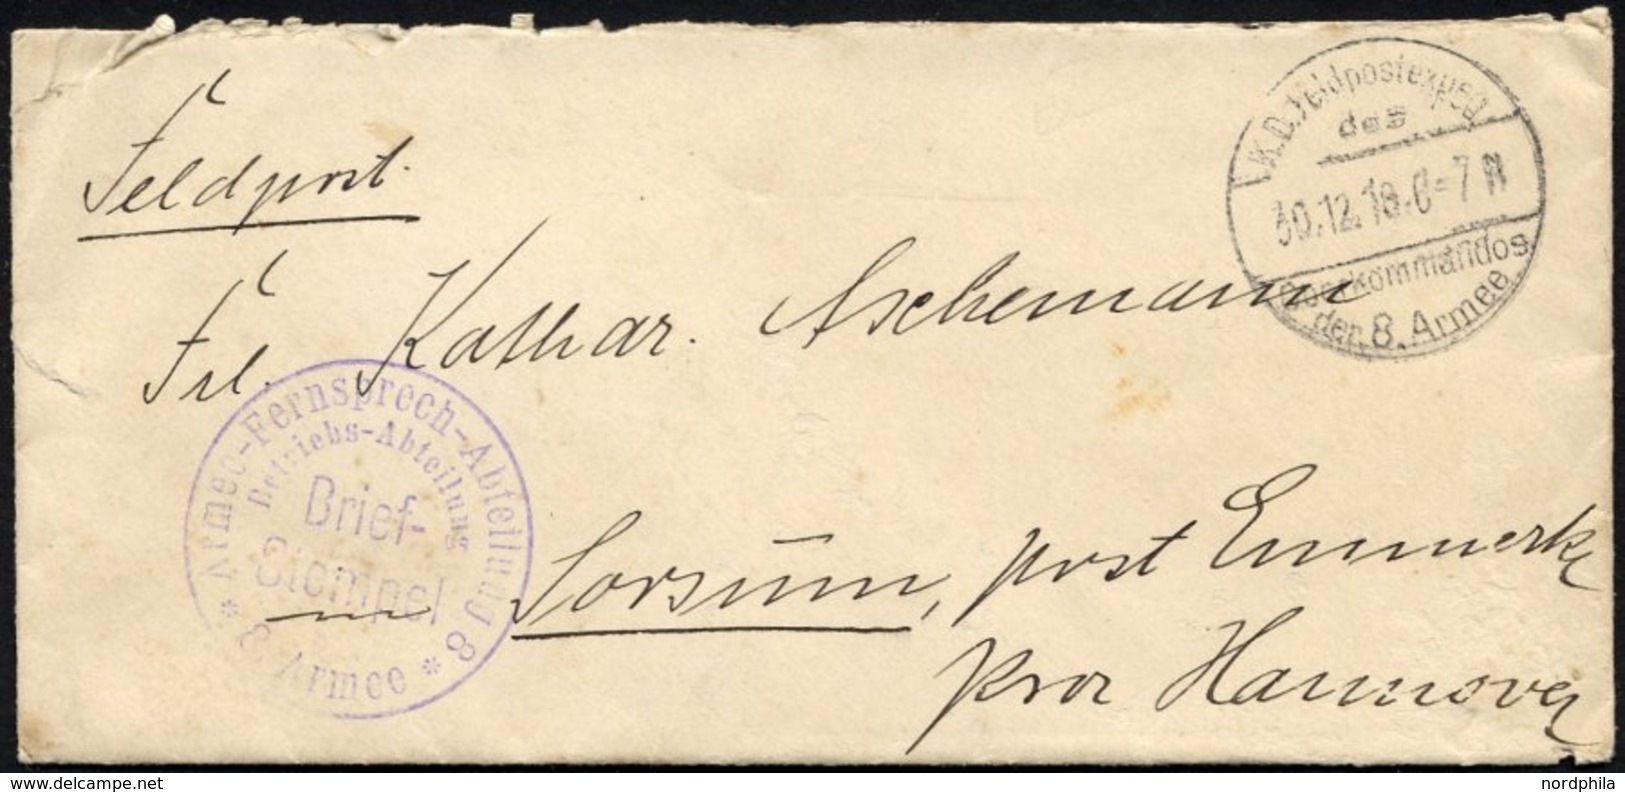 Feldpost.
K.D. Feldpostexped.
des
30.12.18.6-7 N
Oberkommandos
der 8. Armee
Frl. Kathar. Aschemann
Armee-Fernsprech-Abteilung 8
Betriebs-Abteilung
Brief-
Stempel
* 8. Armee *
in Sorsum, post Emmerke
prov Hannover
nordphila